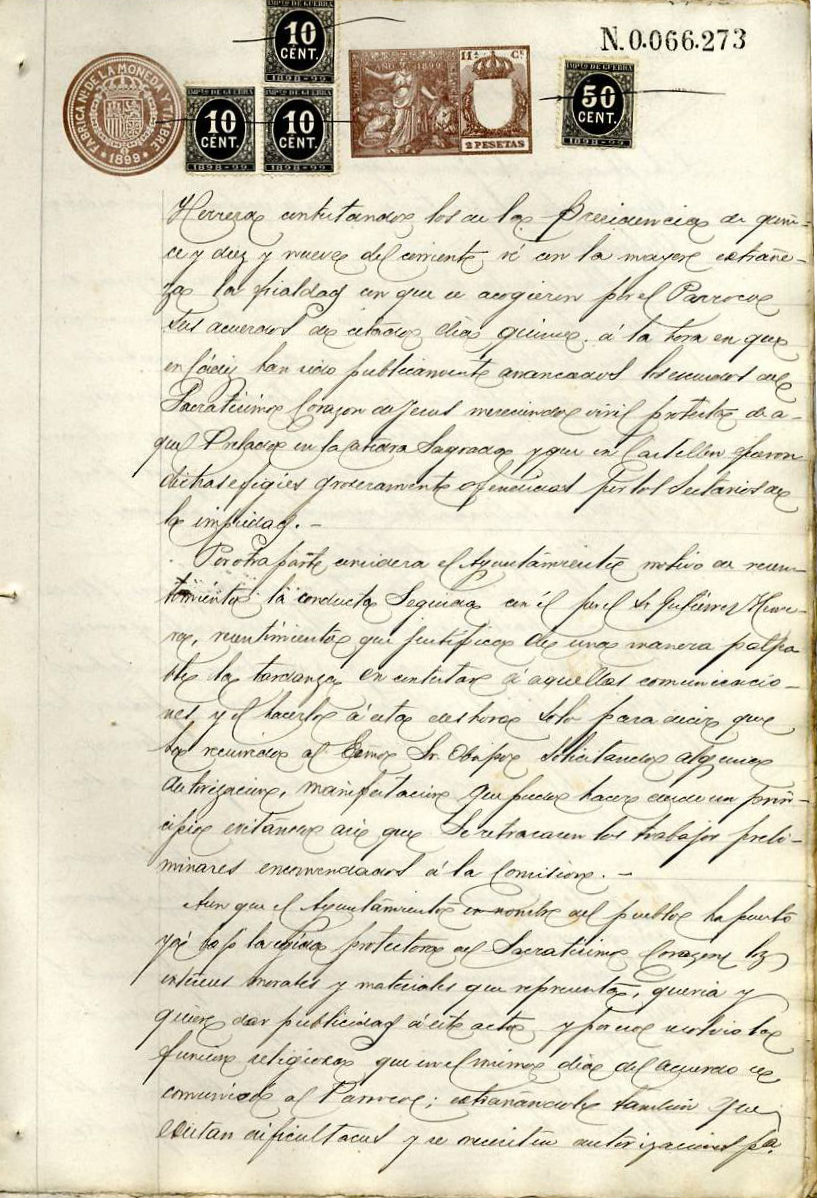 IMPTO DE GUERRA
10
CENT.
1898-99
N.0.066.273
FABRICA NL DE LA MONEDA Y TIMBRE
1899
IMPTO DE GUERRA
10
CENT.
1898-99
IMPTO DE GUERRA
10
CENT.
1898-99
1899
11ª Cl.
2 PESETAS
IMPTO DE GUERRA
50
CENT.
1898-99
Herrera contestando los de la Presidencia de quin-
ce y diez y nueve del corriente vé con la mayor extrañe-
za la frialdad con que se acogieron por el Parroco
sus acuerdos de citado dia quince, á la hora en que
en Cádiz han sido publicamente arrancados los escudos del
Sacratisimo Corazon de Jesus mereciendo viril protesta de a-
quel Prelado en la catedra Sagrada y que en Castellón fueron
dichas efigies groseramente ofendidas por los Sectarios de
la impiedad. -
Por otra parte considera el Ayuntamiento motivo de resen-
timiento la conducta Seguida con él por el Sr Gutiérrez Herre-
ra, resentimiento que justifica de una manera palpa
ble la tardanza en contestar á aquellas comunicacio-
nes, y el hacerlo á esta deshora solo para decir que
ha recurrido al Exmo Sr. Obispo solicitando alguna
autorizacion, manifestacion que pudo hacer desde un prin-
cipio evitando asi que se retrasasen los trabajos preli-
minares encomendados á la Comision. -
Aun que el Ayuntamiento en nombre del pueblo ha puesto
yá bajo la egida protectora del Sacratisimo Corazon los
intereses morales y materiales que representa, queria y
quiere dar publicidad á este acto y por eso resolvio la
funcion religiosa que en el mismo dia del acuerdo se
comunicó al Párroco; extrañandole tambien que
existan dificultades y se necesiten autorizaciones pª.